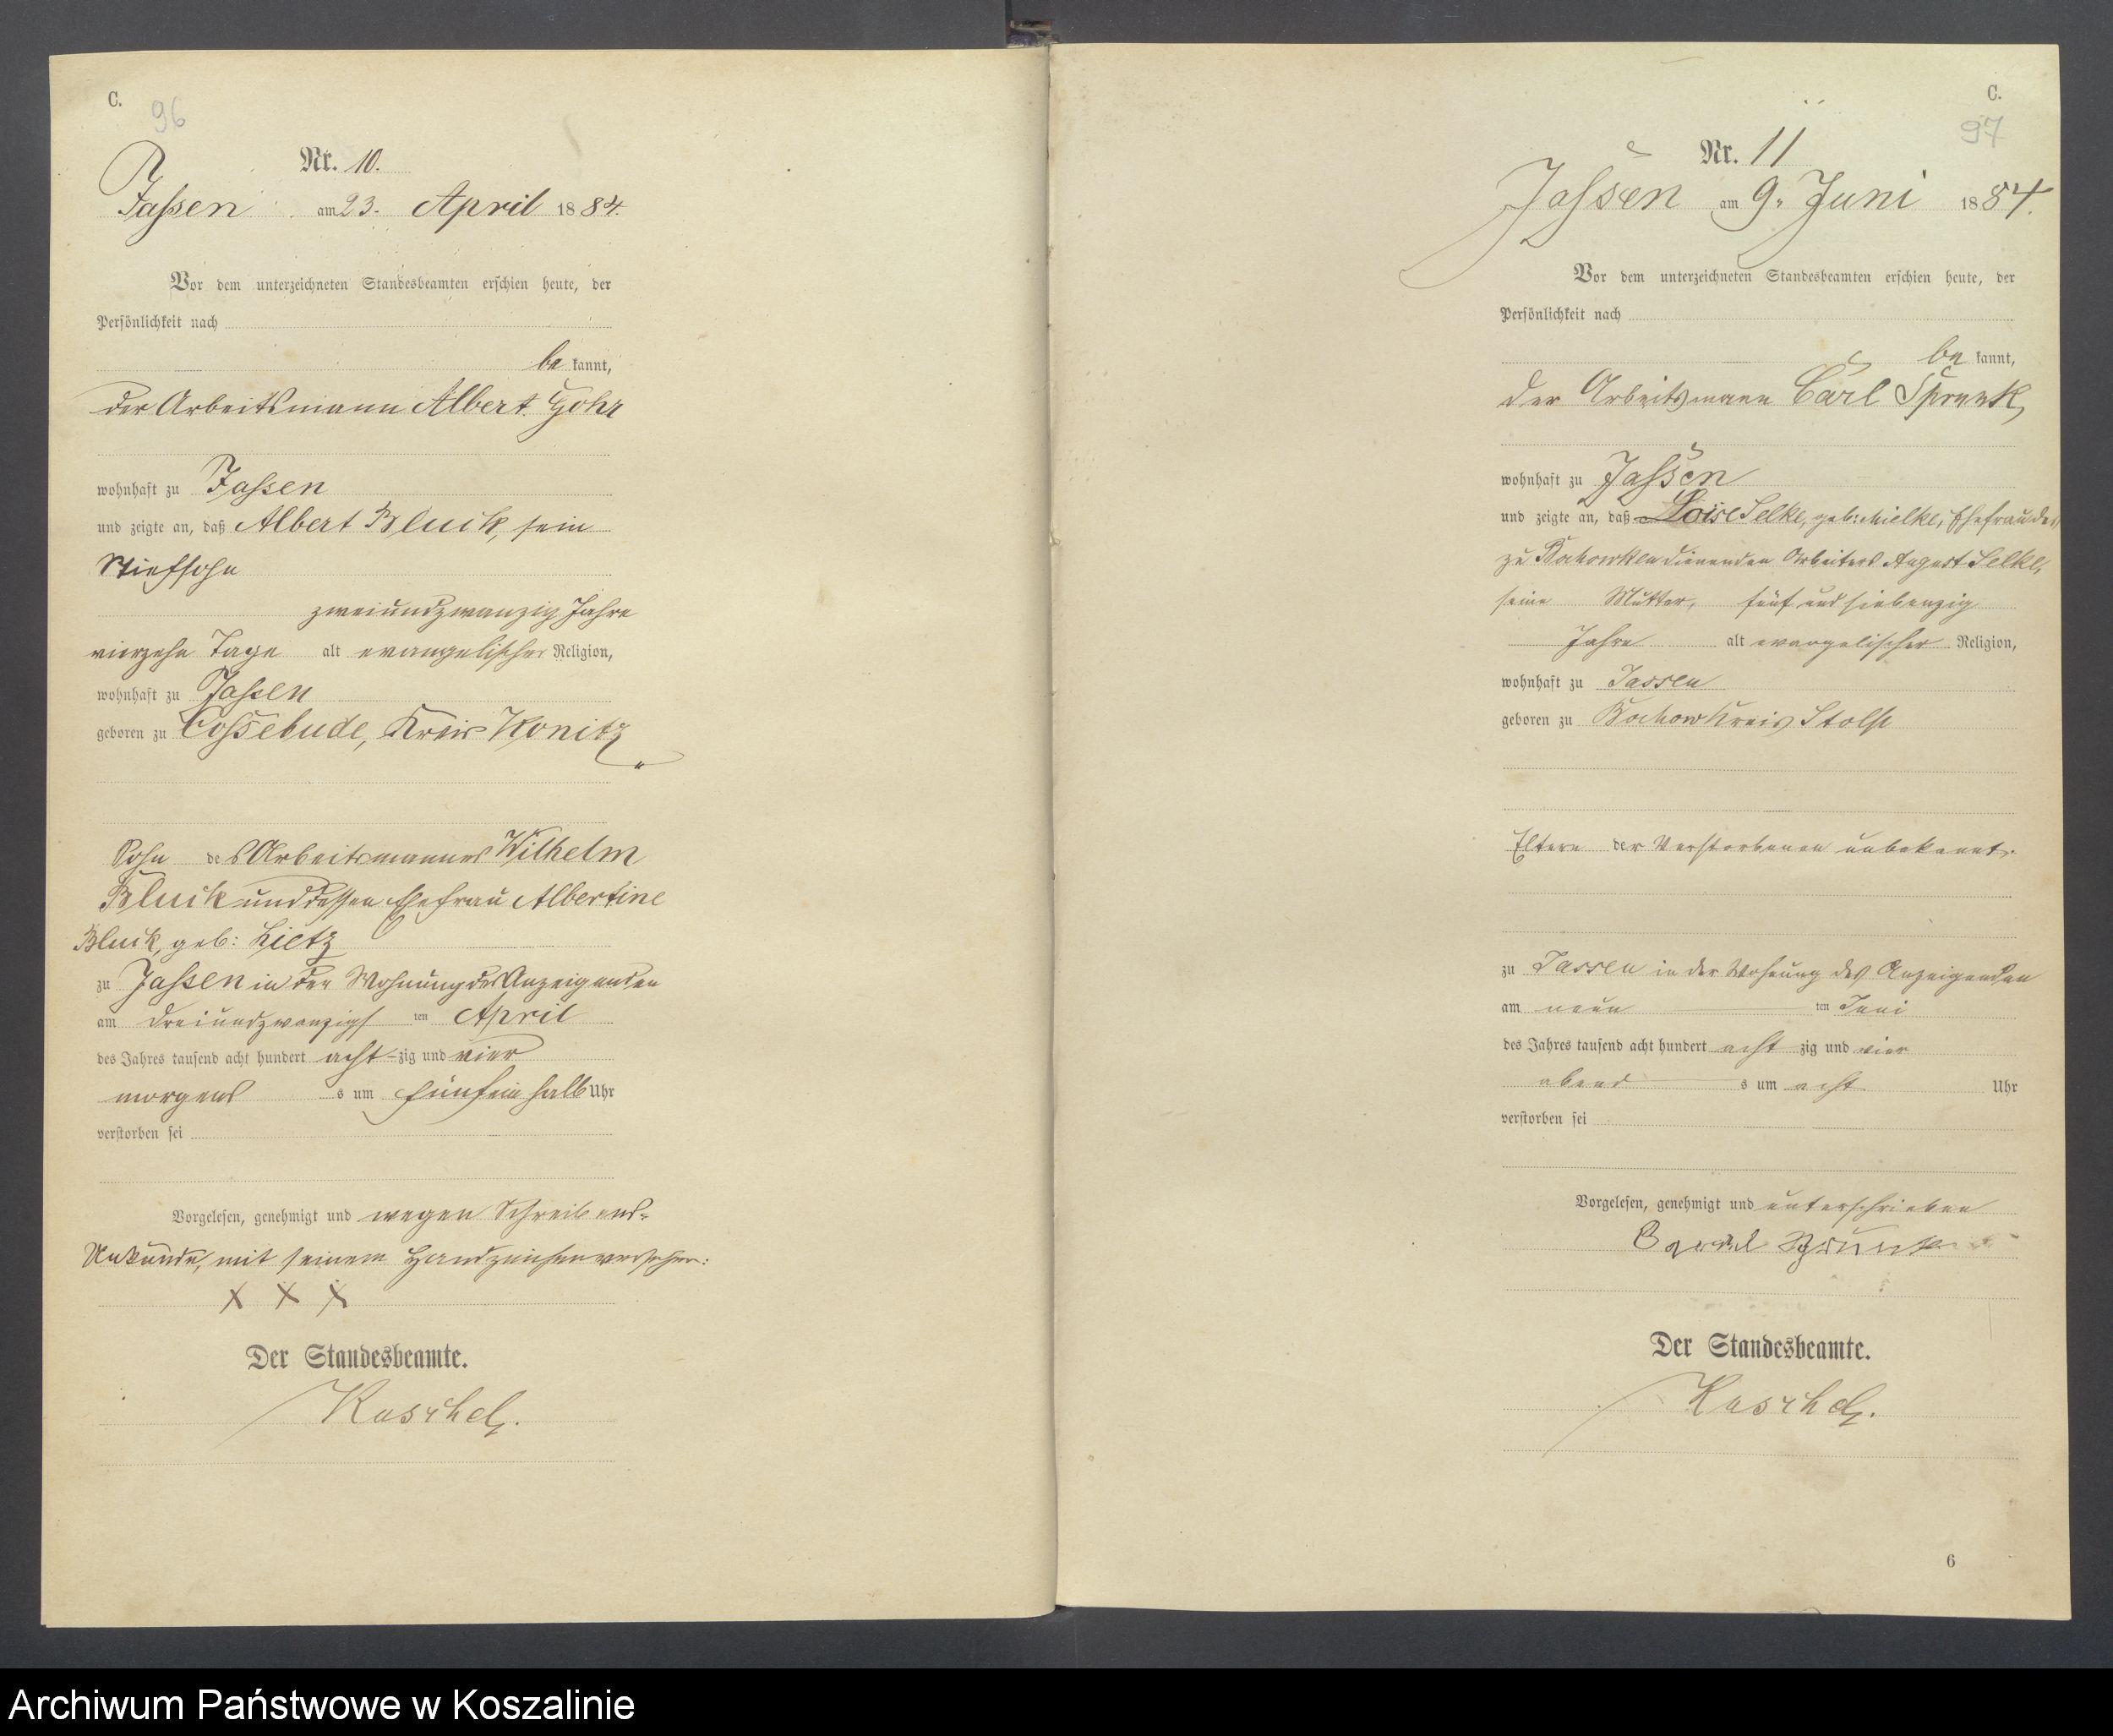 C.
96
Nr. 10.
Jassen am 23. April 1884.
Vor dem unterzeichneten Standesbeamten erschien heute, der
Persönlichkeit nach
be kannt,
der Arbeitsmann Albert Gohr
wohnhaft zu Jassen
und zeigte an, daß Albert Bluik, sein
Stiefsohn
zweiundzwanzig Jahre
vierzehn Tage alt evangelischer Religion,
wohnhaft zu Jassen
geboren zu Cossebude, Kreis Konitz
Sohn des Arbeitsmannes Wilhelm
Bluik und dessen Ehefrau Albertine
Bluik, geb: Lietz
zu Jassen in der Wohnung des Anzeigenden
am dreiundzwanzigsten April
des Jahres tausend acht hundert acht zig und vier
morgens um fünfein halb Uhr
verstorben sei
Vorgelesen, genehmigt und wegen Schreibens-
Unkunde, mit seinem Handzeichen versehen:
X X X
Der Standesbeamte.
C.
97
Nr. 11
Jassen am 9. Juni 1884.
Vor dem unterzeichneten Standesbeamten erschien heute, der
Persönlichkeit nach
be kannt,
der Arbeitsmann Carl
wohnhaft zu Jassen
und zeigte an, daß Loise Selke, geb: Mielke, Ehefrau des
zu dienenden Arbeiters August Selke,
seine Mutter, fünf und siebenzig
Jahre alt evangelischer Religion,
wohnhaft zu Jassen
geboren zu Kreis Stolp
Eltern der Verstorbenen unbekannt.
zu Jassen in der Wohnung des Anzeigenden
am neun ten Juni
des Jahres tausend acht hundert acht zig und vier
abend s um acht Uhr
verstorben sei
Vorgelesen, genehmigt und unterschrieben
Der Standesbeamte.
6
Archiwum Państwowe w Koszalinie